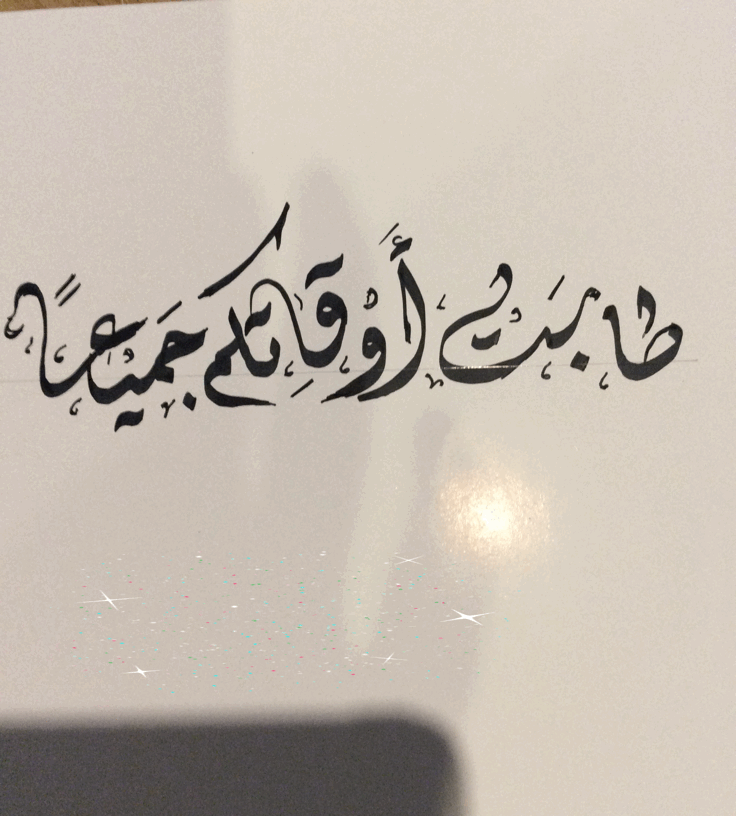 طابَتْ أَوْقَاتِكُم جَميْعاً